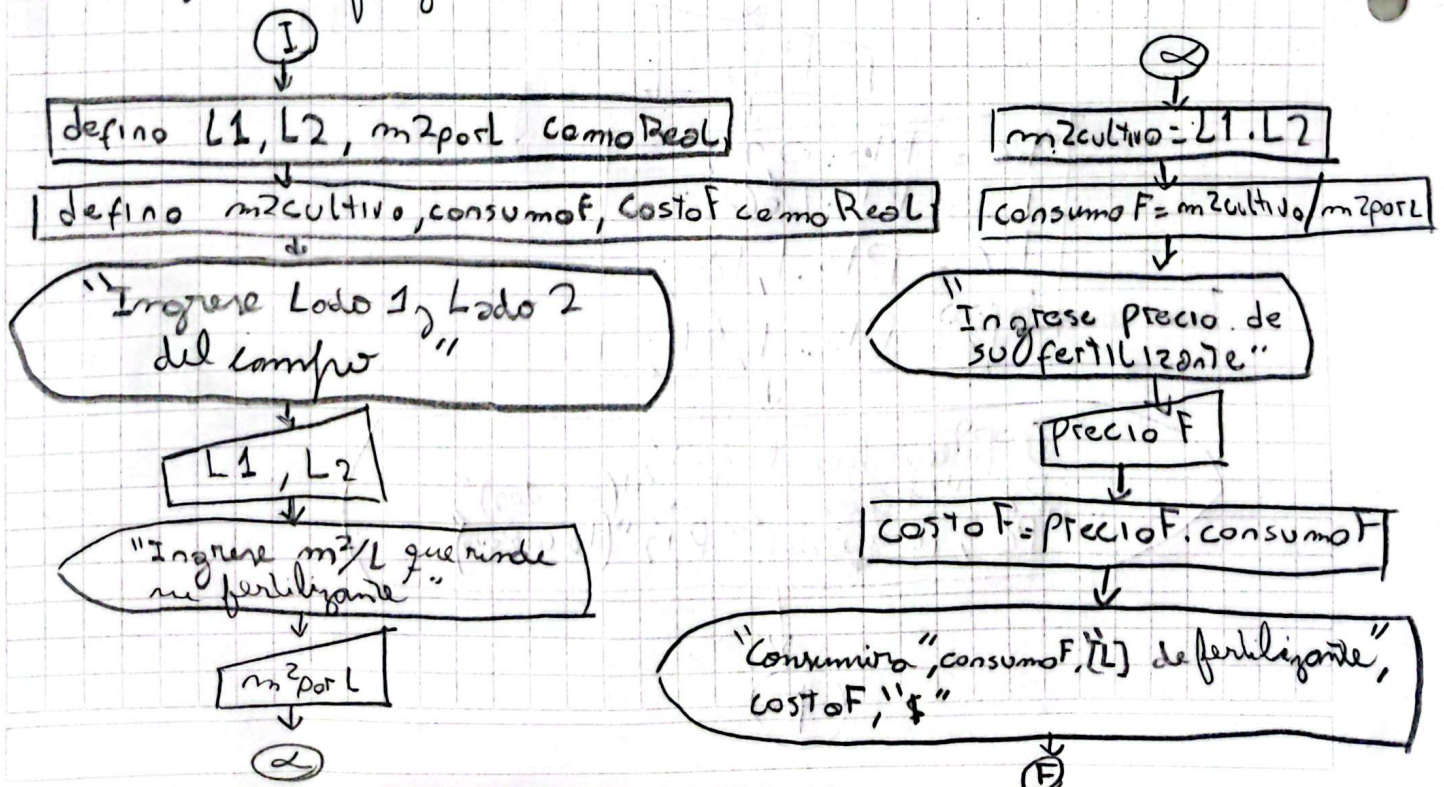 I
defino L1, L2, m2porL como Real
defino m2cultivo, consumoF, CostoF como Real
"Ingrese Lado 1, Lado 2
del campo"
L1, L2
"Ingrese m²/L que rinde
su fertilizante"
m²por L
α
α
m2cultivo = L1 . L2
consumo F = m2cultivo/m2porL
"Ingrese precio de
su fertilizante"
precio F
costo F = precioF . consumo F
"Consumira", consumoF, "[L] de fertilizante",
costoF, "$"
F